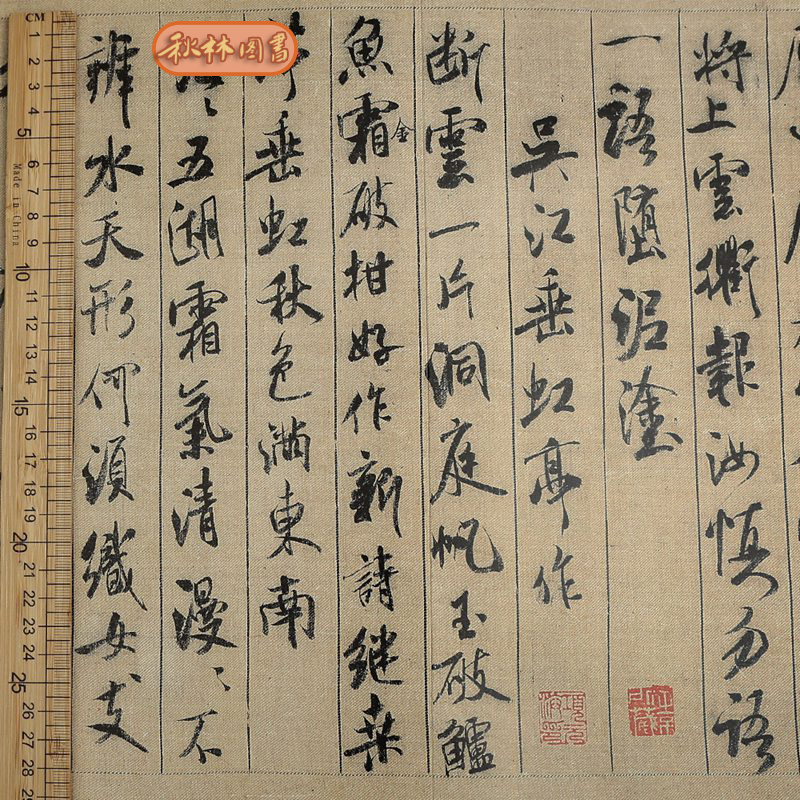 將上雲衢報汝慎勿語
一語墮泥塗
吳江垂虹亭作
斷雲一片洞庭帆玉破鱸
魚霜金破柑好作新詩繼桑
垂虹秋色滿東南
〻五湖霜氣清漫〻不
辨水天形何須織女支
秋林图書
CM
Made in China
1
2
3
4
5
6
7
8
9
10
11
12
13
14
15
16
17
18
19
20
21
22
23
24
25
26
27
28
29